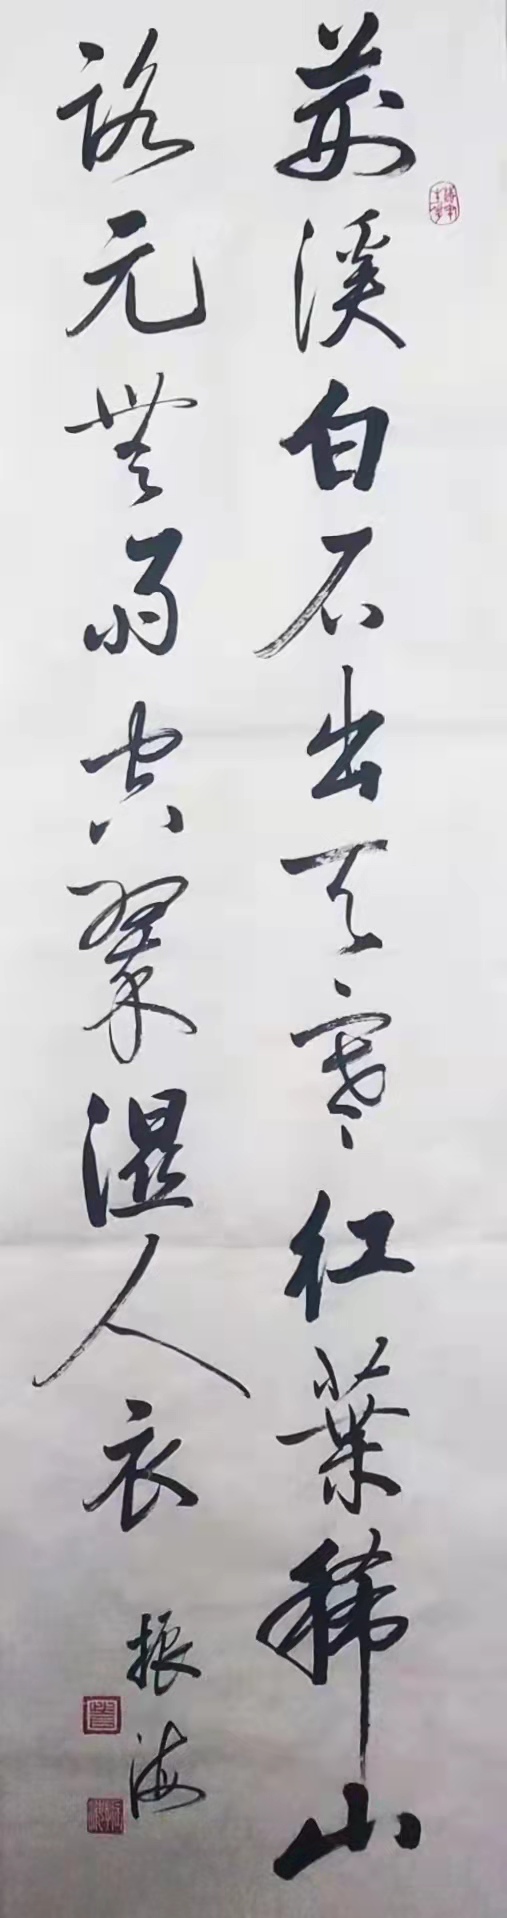 荆溪白石出天寒红葉稀山
路元無雨空翠濕人衣
振海